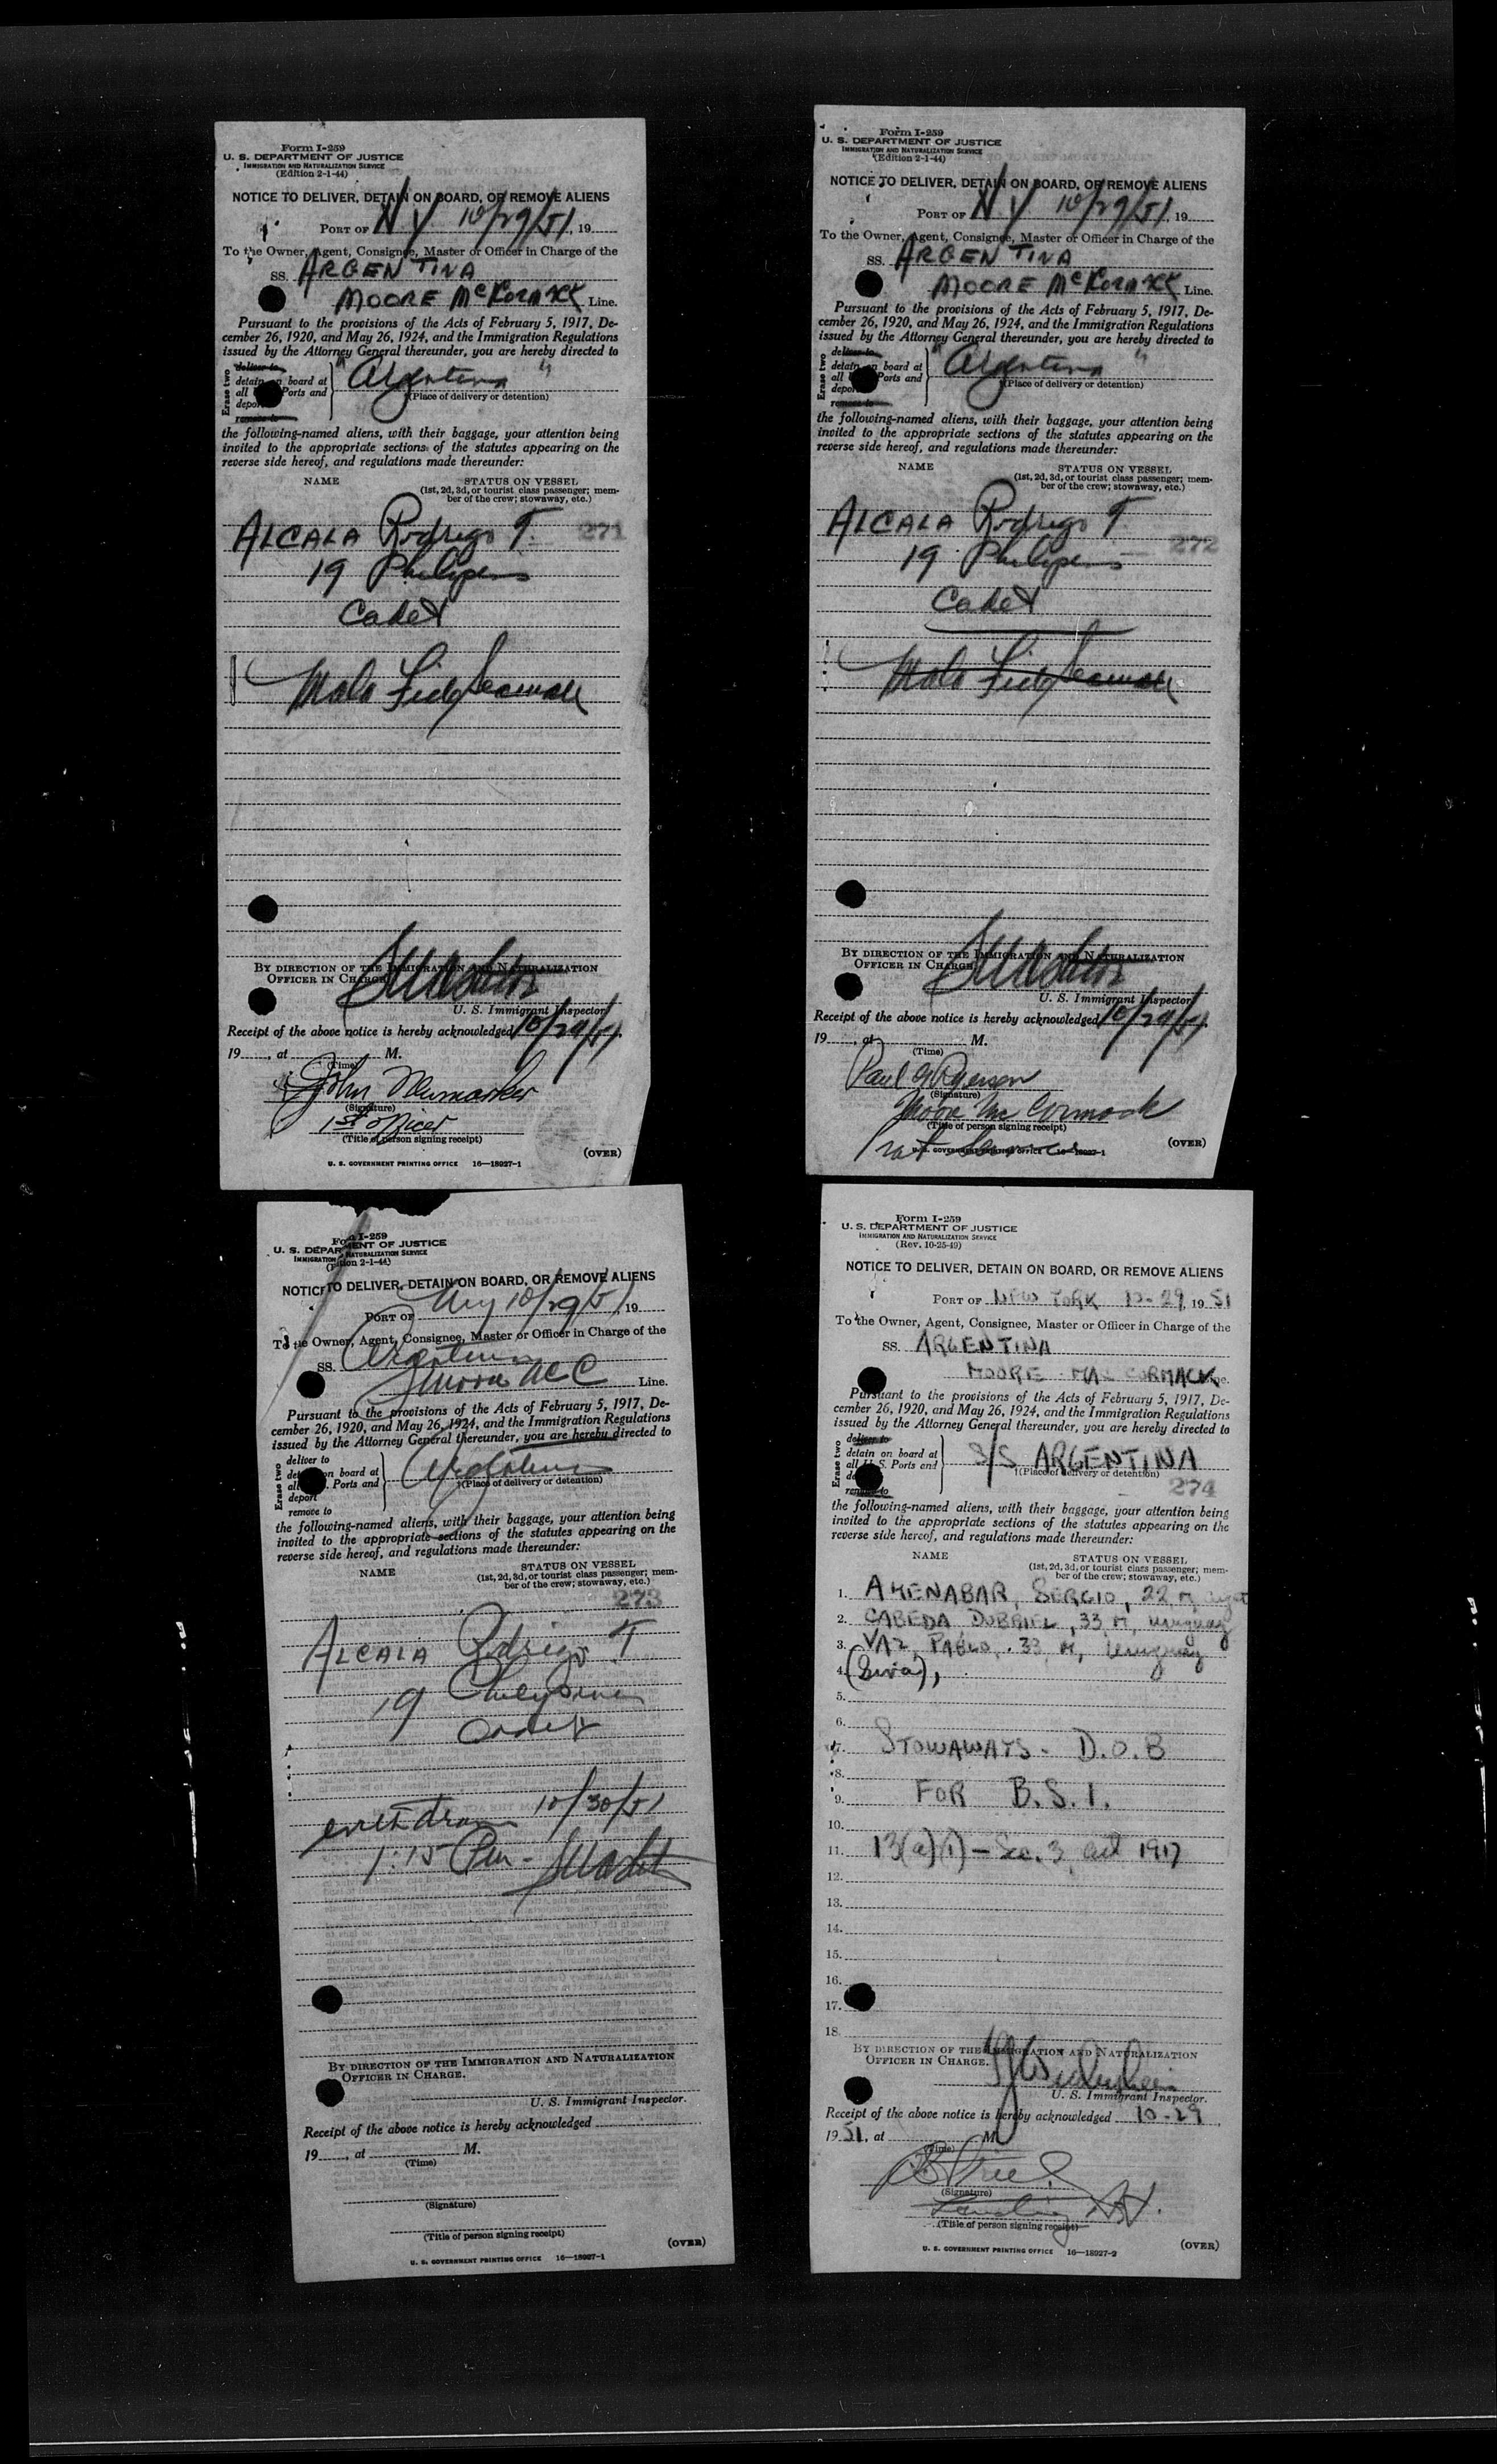 Form I-259
U. S. DEPARTMENT OF JUSTICE
IMMIGRATION AND NATURALIZATION SERVICE
(Edition 2-1-44)
NOTICE TO DELIVER, DETAIN ON BOARD, OR REMOVE ALIENS
PORT OF N Y 10/29/51, 19
To the Owner, Agent, Consignee, Master or Officer in Charge of the
SS. ARGENTINA
MOORE McKormack Line.
Pursuant to the provisions of the Acts of February 5, 1917, De-
cember 26, 1920, and May 26, 1924, and the Immigration Regulations
issued by the Attorney General thereunder, you are hereby directed to
Erase two
deliver to
detain on board at
all Ports and
depor
remove to
"Argentina"
(Place of delivery or detention)
the following-named aliens, with their baggage, your attention being
invited to the appropriate sections of the statutes appearing on the
reverse side hereof, and regulations made thereunder:
NAME STATUS ON VESSEL
(1st, 2d, 3d, or tourist class passenger; mem-
ber of the crew; stowaway, etc.)
ALCALA Rodrigo T. 271
19 Philipens
Cadet
Mala Fide Seaman
BY DIRECTION OF THE IMMIGRATION AND NATURALIZATION
OFFICER IN CHARGE
U. S. Immigrant Inspector
Receipt of the above notice is hereby acknowledged 10/29/51.
19, at M.
(Time)
John Newmarker
(Signature)
1st officer
(Title of person signing receipt)
(OVER)
U. S. GOVERNMENT PRINTING OFFICE 16—18927-1
Form I-259
U. S. DEPARTMENT OF JUSTICE
IMMIGRATION AND NATURALIZATION SERVICE
(Edition 2-1-44)
NOTICE TO DELIVER, DETAIN ON BOARD, OR REMOVE ALIENS
PORT OF N Y 10/29/51, 19
To the Owner, Agent, Consignee, Master or Officer in Charge of the
SS. ARGENTINA
MOORE McKormack Line.
Pursuant to the provisions of the Acts of February 5, 1917, De-
cember 26, 1920, and May 26, 1924, and the Immigration Regulations
issued by the Attorney General thereunder, you are hereby directed to
Erase two
deliver to
detain on board at
all Ports and
depor
remove to
"Argentina"
(Place of delivery or detention)
the following-named aliens, with their baggage, your attention being
invited to the appropriate sections of the statutes appearing on the
reverse side hereof, and regulations made thereunder:
NAME STATUS ON VESSEL
(1st, 2d, 3d, or tourist class passenger; mem-
ber of the crew; stowaway, etc.)
ALCALA Rodrigo T.
272
19 Philipens
Cadet
Mala Fide Seaman
BY DIRECTION OF THE IMMIGRATION AND NATURALIZATION
OFFICER IN CHARGE
U. S. Immigrant Inspector
Receipt of the above notice is hereby acknowledged 10/29/51.
19, at M.
(Time)
Paul G Ryerson
(Signature)
Moore Mc Cormack
(Title of person signing receipt)
(OVER)
U. S. GOVERNMENT PRINTING OFFICE 16—18927-1
Form I-259
U. S. DEPARTMENT OF JUSTICE
IMMIGRATION NATURALIZATION SERVICE
(Edition 2-1-44)
NOTICE TO DELIVER, DETAIN ON BOARD, OR REMOVE ALIENS
PORT OF NY 10/29/51, 19
To the Owner, Agent, Consignee, Master or Officer in Charge of the
SS. Argentina
Moore McC Line.
Pursuant to the provisions of the Acts of February 5, 1917, De-
cember 26, 1920, and May 26, 1924, and the Immigration Regulations
issued by the Attorney General thereunder, you are hereby directed to
Erase two
deliver to
on board at
Ports and
deport
remove to
Argentina
(Place of delivery or detention)
the following-named aliens, with their baggage, your attention being
invited to the appropriate sections of the statutes appearing on the
reverse side hereof, and regulations made thereunder:
NAME STATUS ON VESSEL
(1st, 2d, 3d, or tourist class passenger; mem-
ber of the crew; stowaway, etc.)
273
ALCALA Rodrigo T
19
Cadet
withdrawn 10/30/51
1:15 Pm -
BY DIRECTION OF THE IMMIGRATION AND NATURALIZATION
OFFICER IN CHARGE.
U. S. Immigrant Inspector.
Receipt of the above notice is hereby acknowledged
19, at M.
(Time)
(Signature)
(Title of person signing receipt)
(OVER)
U. S. GOVERNMENT PRINTING OFFICE 16—18927-1
Form I-259
U. S. DEPARTMENT OF JUSTICE
IMMIGRATION AND NATURALIZATION SERVICE
(Rev. 10-25-49)
NOTICE TO DELIVER, DETAIN ON BOARD, OR REMOVE ALIENS
PORT OF NEW YORK 10-29, 1951
To the Owner, Agent, Consignee, Master or Officer in Charge of the
SS. ARGENTINA
MOORE MAC CORMACK
Pursuant to the provisions of the Acts of February 5, 1917, De-
cember 26, 1920, and May 26, 1924, and the Immigration Regulations
issued by the Attorney General thereunder, you are hereby directed to
Erase two
deliver to
detain on board at
all U. S. Ports and
remove to
S/S ARGENTINA
(Place of delivery or detention)
274
the following-named aliens, with their baggage, your attention being
invited to the appropriate sections of the statutes appearing on the
reverse side hereof, and regulations made thereunder:
NAME STATUS ON VESSEL
(1st, 2d, 3d, or tourist class passenger; mem-
ber of the crew; stowaway, etc.)
1. AMENABAR, SERGIO, 22 M,
2. CABEDA DUBRIEL, 33 M, Uruguay
3. VAZ, PABLO, 33, M, Uruguay
4.
5.
6.
7. STOWAWAYS - D.O.B
8.
9. FOR B.S.I.
10.
11. 13(a)(1) - Sec. 3 act 1917
12.
13.
14.
15.
16.
17.
18.
BY DIRECTION OF THE IMMIGRATION AND NATURALIZATION
OFFICER IN CHARGE.
U. S. Immigrant Inspector.
Receipt of the above notice is hereby acknowledged 10-29,
1951, at M.
(Time)
(Signature)
(Title of person signing receipt)
(OVER)
U. S. GOVERNMENT PRINTING OFFICE 16—18927-2